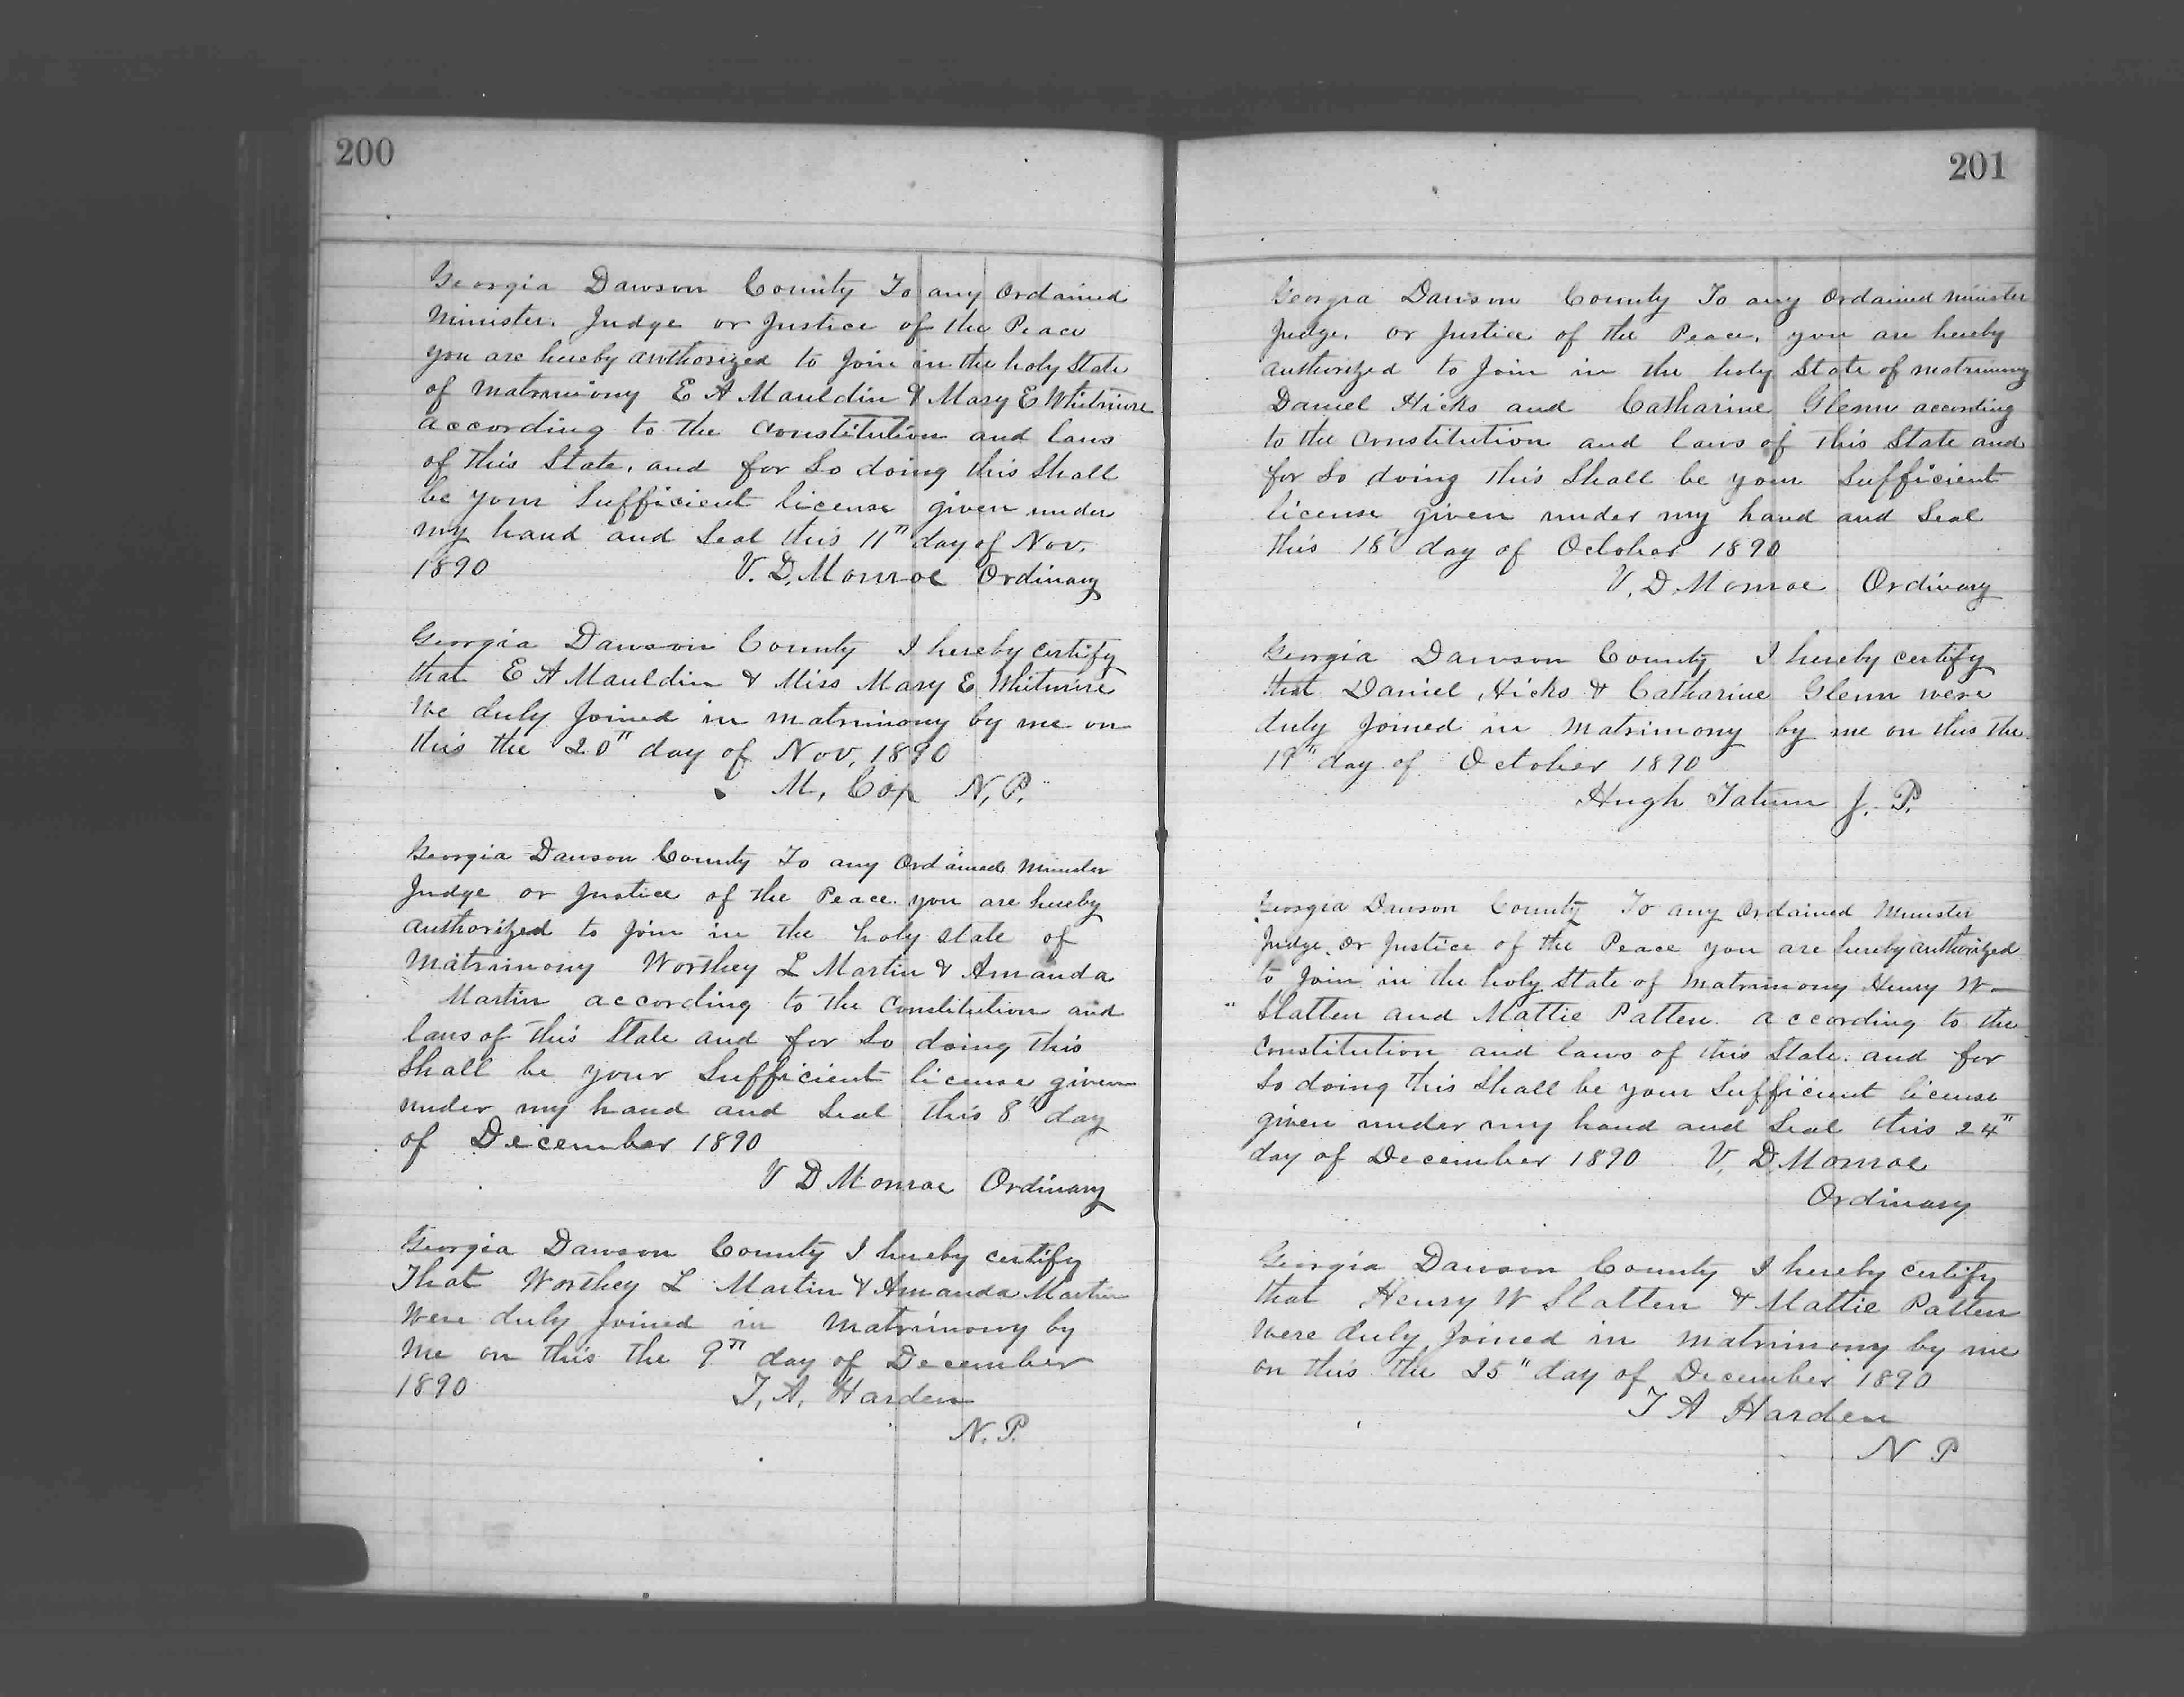 200
Georgia Dawson County To any Ordained
Minister. Judge or Justice of the Peace
you are hereby authorized to Join in the holy State
of Matrimony E A Mauldin & Mary E Whitmire
according to the Constitution and laws
of this State. and for So doing this Shall
be your Sufficient license given under
my hand and Seal this 11" day of Nov.
1890 V. D. Monroe Ordinary
Georgia Dawson County I hereby certify
that E A Mauldin & Miss Mary E Whitmire
We duly Joined in matrimony by me on
this the 20" day of Nov, 1890
M, Cox N, P.
Georgia Dawson County To any Ordained Minister
Judge or Justice of the Peace. you are hereby
authorized to Join in the holy state of
Matrimony Worthey L Martin & Amanda
Martin according to the Constitution and
laws of this State and for So doing this
Shall be your Sufficient license given
under my hand and Seal this 8" day
of December 1890
V D Monroe Ordinary
Georgia Dawson County I hereby certify
That Worthey L Martin & Amanda Martin
Were duly Joined in Matrimony by
Me on this the 9" day of December
1890 T, A, Harden
N. P.
201
Georgia Dawson County To any Ordained minister
Judge, or Justice of the Peace, you are hereby
authorized to Join in the holy State of matrimony
Daniel Hicks and Catharine Glenn according
to the Constitution and laws of this State and
for So doing this Shall be your Sufficient
license given under my hand and Seal
this 18" day of October 1890
V. D. Monroe Ordinary
Georgia Dawson County I hereby certify
that Daniel Hicks & Catharine Glenn were
duly Joined in Matrimony by me on this the
19" day of October 1890
Hugh Tatum J. P.
Georgia Dawson County To any Ordained Minister
Judge, Or Justice of the Peace you are hereby authorized
to Join in the holy State of Matrimony Henry W
Slatten and Mattie Patten. according to the
Constitution and laws of this State. and for
So doing this Shall be your Sufficient license
given under my hand and Seal this 24"
day of December 1890 V. D Monroe
Ordinary
Georgia Dawson County I hereby certify
that Henry W Slatten & Mattie Patten
Were duly Joined in matrimony by me
on this the 25" day of December 1890
T A Harden
N P